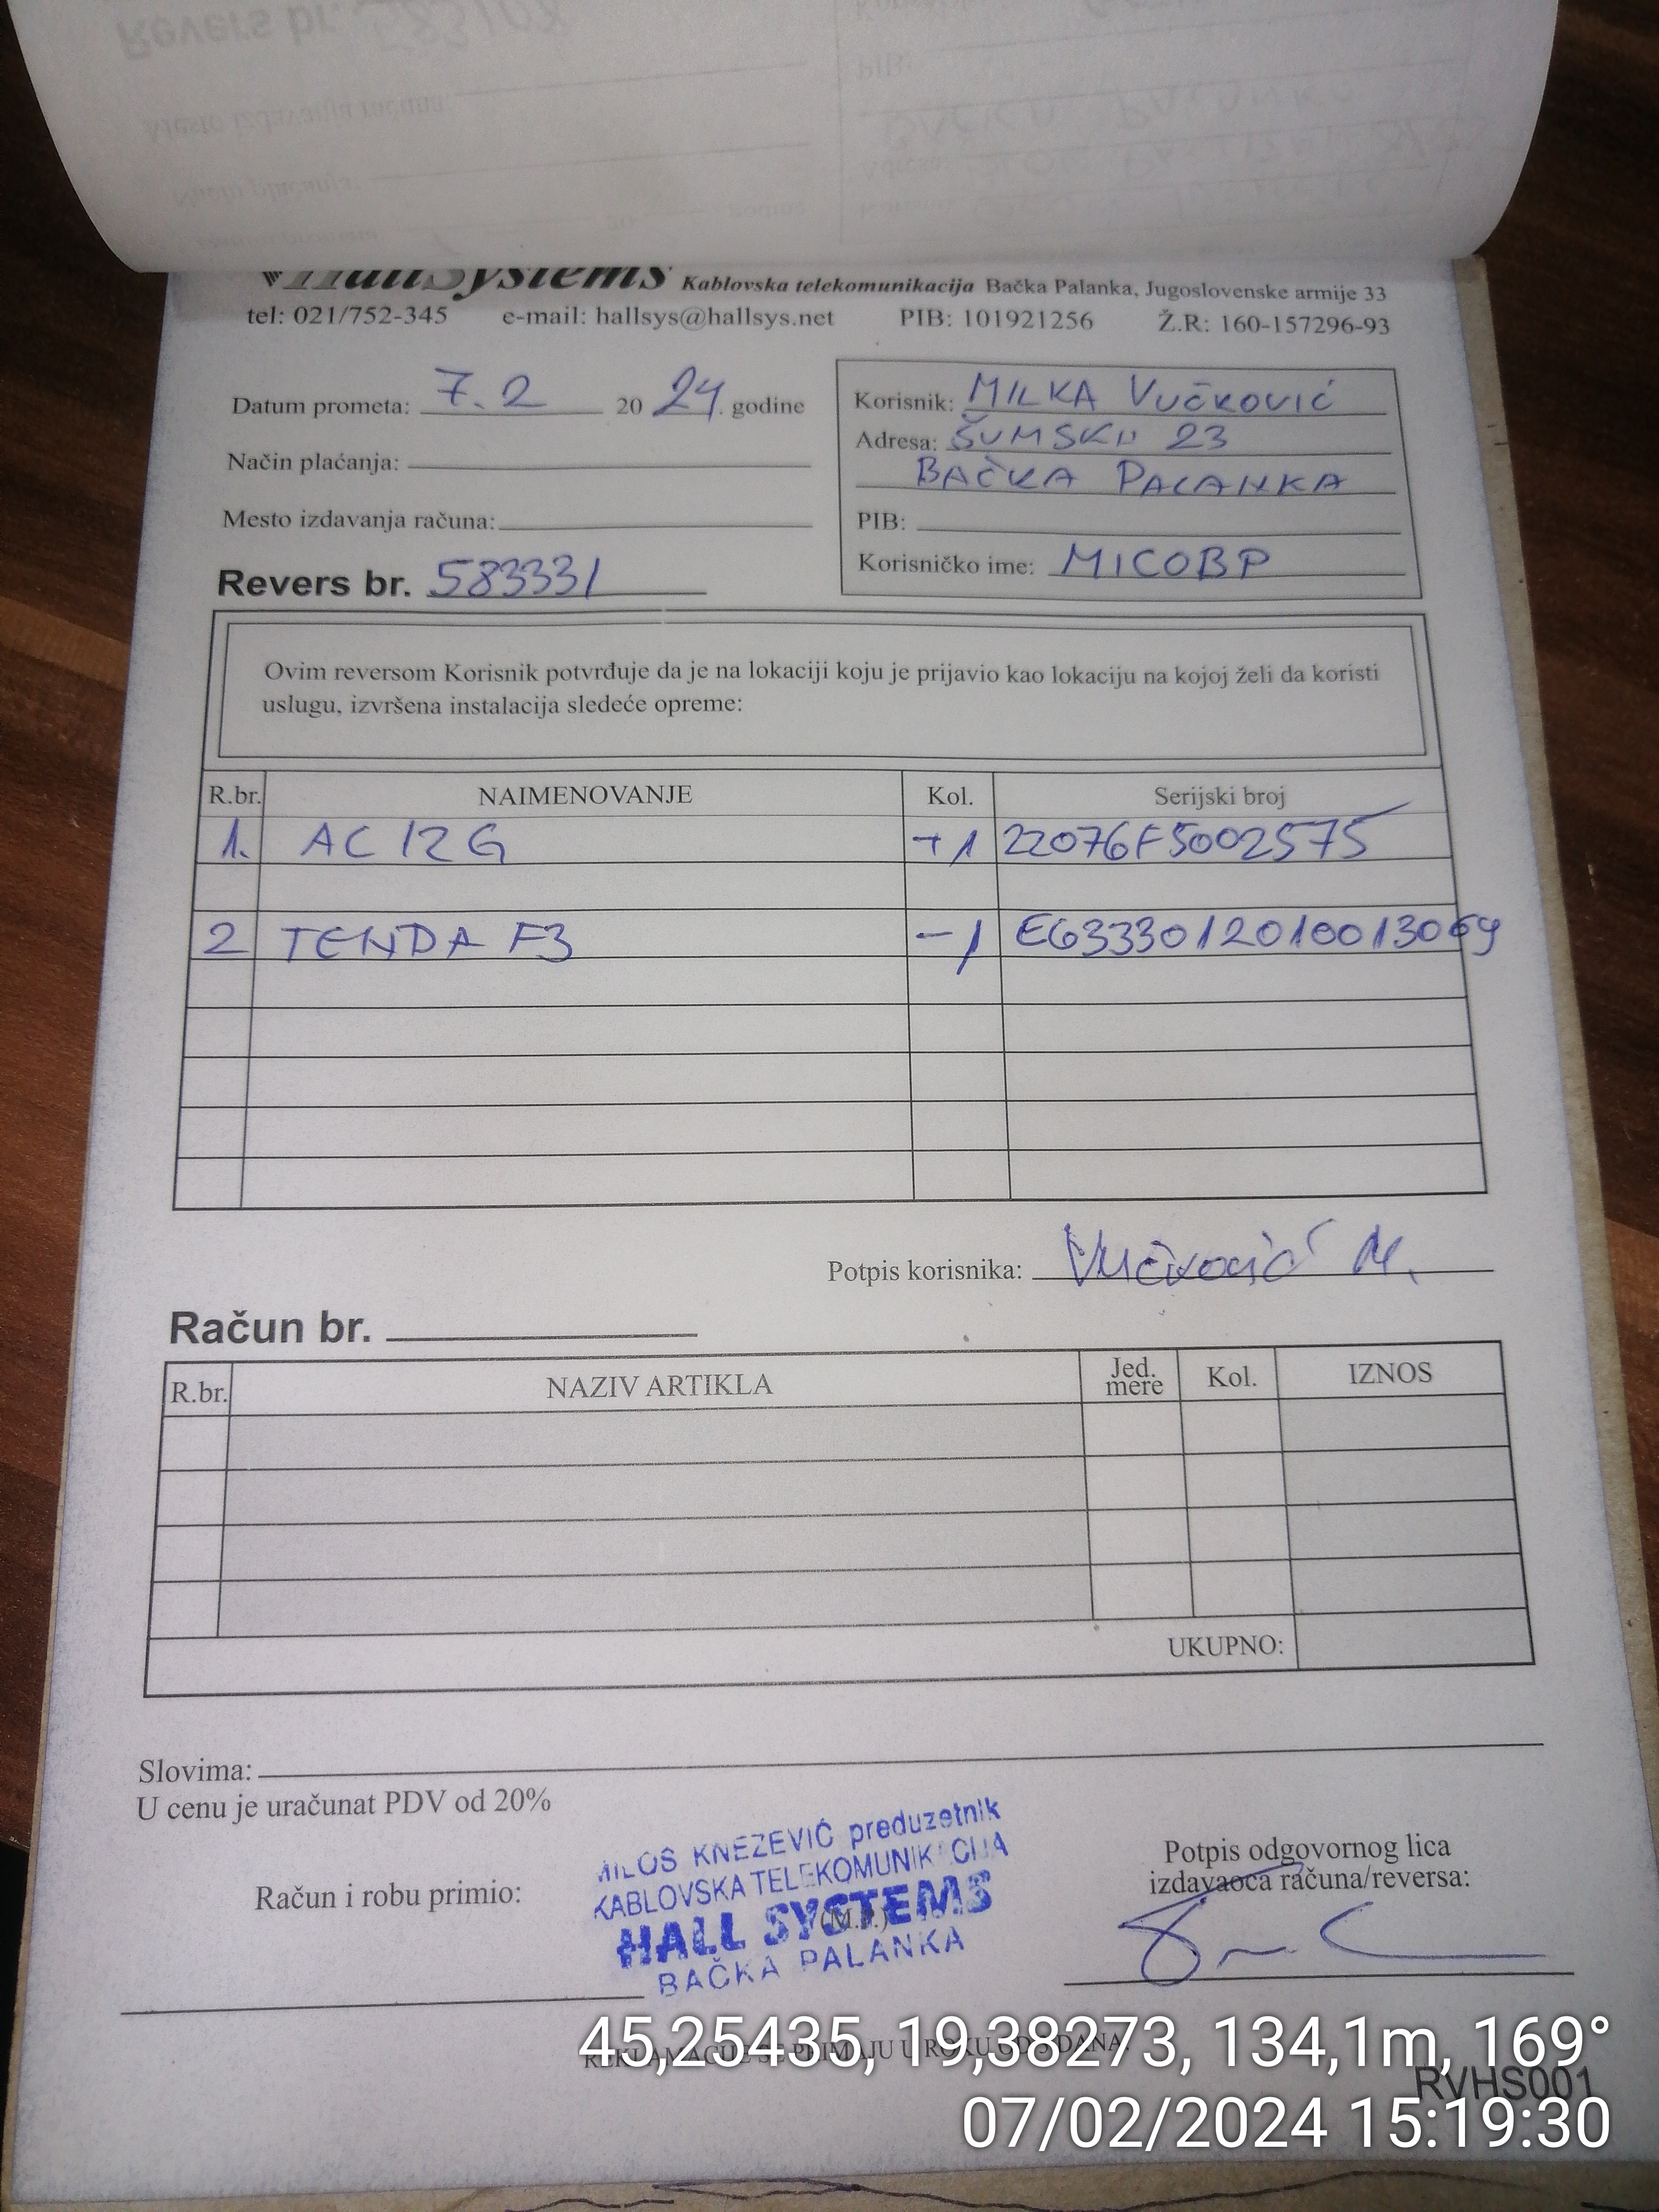 HallSystems Kablovska telekomunikacija Bačka Palanka, Jugoslovenske armije 33
tel: 021/752-345 e-mail: hallsys@hallsys.net PIB: 101921256 Ž.R: 160-157296-93
Datum prometa: 7.2 20 24. godine
Način plaćanja:
Mesto izdavanja računa:
Revers br. 583331
Korisnik: MILKA VUČKOVIĆ
Adresa: ŠUMSKA 23
BAČKA PALANKA
PIB:
Korisničko ime: MICOBP
Ovim reversom Korisnik potvrđuje da je na lokaciji koju je prijavio kao lokaciju na kojoj želi da koristi
uslugu, izvršena instalacija sledeće opreme:
R.br. NAIMENOVANJE Kol. Serijski broj
1. AC12G +1 22076F5002575
2 TENDA F3 -1 E6333012010013069
Potpis korisnika: Vučković M.
Račun br.
R.br. NAZIV ARTIKLA Jed. mere Kol. IZNOS
UKUPNO:
Slovima:
U cenu je uračunat PDV od 20%
MILOŠ KNEŽEVIĆ preduzetnik
KABLOVSKA TELEKOMUNIKACIJA
HALL SYSTEMS
BAČKA PALANKA
Račun i robu primio:
(M.P.)
Potpis odgovornog lica
izdavaoca računa/reversa:
45,25435, 19,38273, 134,1m, 169°
RVHS001
07/02/2024 15:19:30